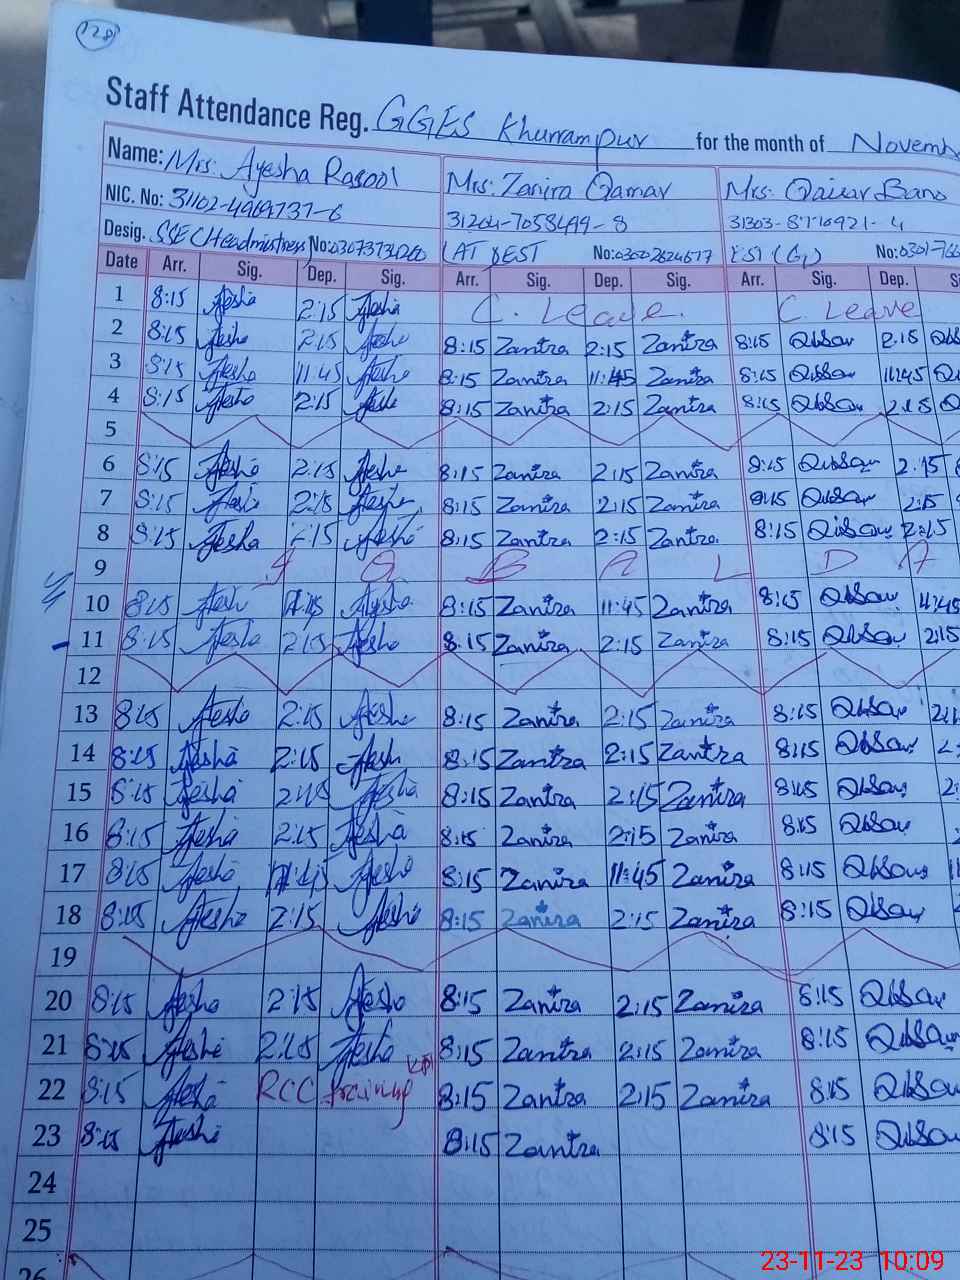 128
Staff Attendance Reg. GGES Khurrampur for the month of Novemb
Name: Mrs. Ayesha Rasool Mrs. Zanira Qamar Mrs. Qaisar Bano
NIC. No: 31102-4969737-6 31204-7058499-8 31303-8770921-4
Desig. SSE (Headmistress No:03073731260 (AT EST No: EST (G) No:0301-766
Date Arr. Sig. Dep. Sig. Arr. Sig. Dep. Sig. Arr. Sig. Dep.
1 8:15 Aesha 2:15 Aesha C. Leave. C. Leave
2 8:15 Aesha 2:15 Aesha 8:15 Zanira 2:15 Zanira 8:15 QbSar 2:15
3 8:15 Aesha 11:45 Aesha 8:15 Zanira 11:45 Zanira 8:15 QbSar 11:45
4 8:15 Aesha 2:15 Aesha 8:15 Zanira 2:15 Zanira 8:15 QbSar 2:15
5
6 8:15 Aesha 2:15 Aesha 8:15 Zanira 2:15 Zanira 8:15 QibSar 2:15
7 8:15 Aesha 2:15 Aesha 8:15 Zanira 2:15 Zanira 8:15 QibSar 2:15
8 8:15 Aesha 2:15 Aesha 8:15 Zanira 2:15 Zanira 8:15 QibSar 2:15
9 I Q B A L D A
10 8:15 Aesha 11:45 Ayesha 8:15 Zanira 11:45 Zanira 8:15 QbSar 11:45
11 8:15 Aesha 2:15 Aesha 8:15 Zanira 2:15 Zanira 8:15 QbSar 2:15
12
13 8:15 Aesha 2:15 Aesha 8:15 Zanira 2:15 Zanira 8:15 QbSar
14 8:15 Aesha 2:15 Aesha 8:15 Zanira 2:15 Zanira 8:15 QbSar
15 8:15 Aesha 2:15 Aesha 8:15 Zanira 2:15 Zanira 8:15 QbSar
16 8:15 Aesha 2:15 Aesha 8:15 Zanira 2:15 Zanira 8:15 QbSar
17 8:15 Aesha 11:45 Aesha 8:15 Zanira 11:45 Zanira 8:15 QbSar
18 8:15 Aesha 2:15 Aesha 8:15 Zanira 2:15 Zanira 8:15 QbSar
19
20 8:15 Aesha 2:15 Aesha 8:15 Zanira 2:15 Zanira 8:15 QbSar
21 8:15 Aesha 2:15 Aesha 8:15 Zanira 2:15 Zanira 8:15 QbSar
22 8:15 Aesha RCC training 8:15 Zanira 2:15 Zanira 8:15 QbSar
23 8:15 Aesha 8:15 Zanira 8:15 QbSar
24
25
26
23-11-23 10:09